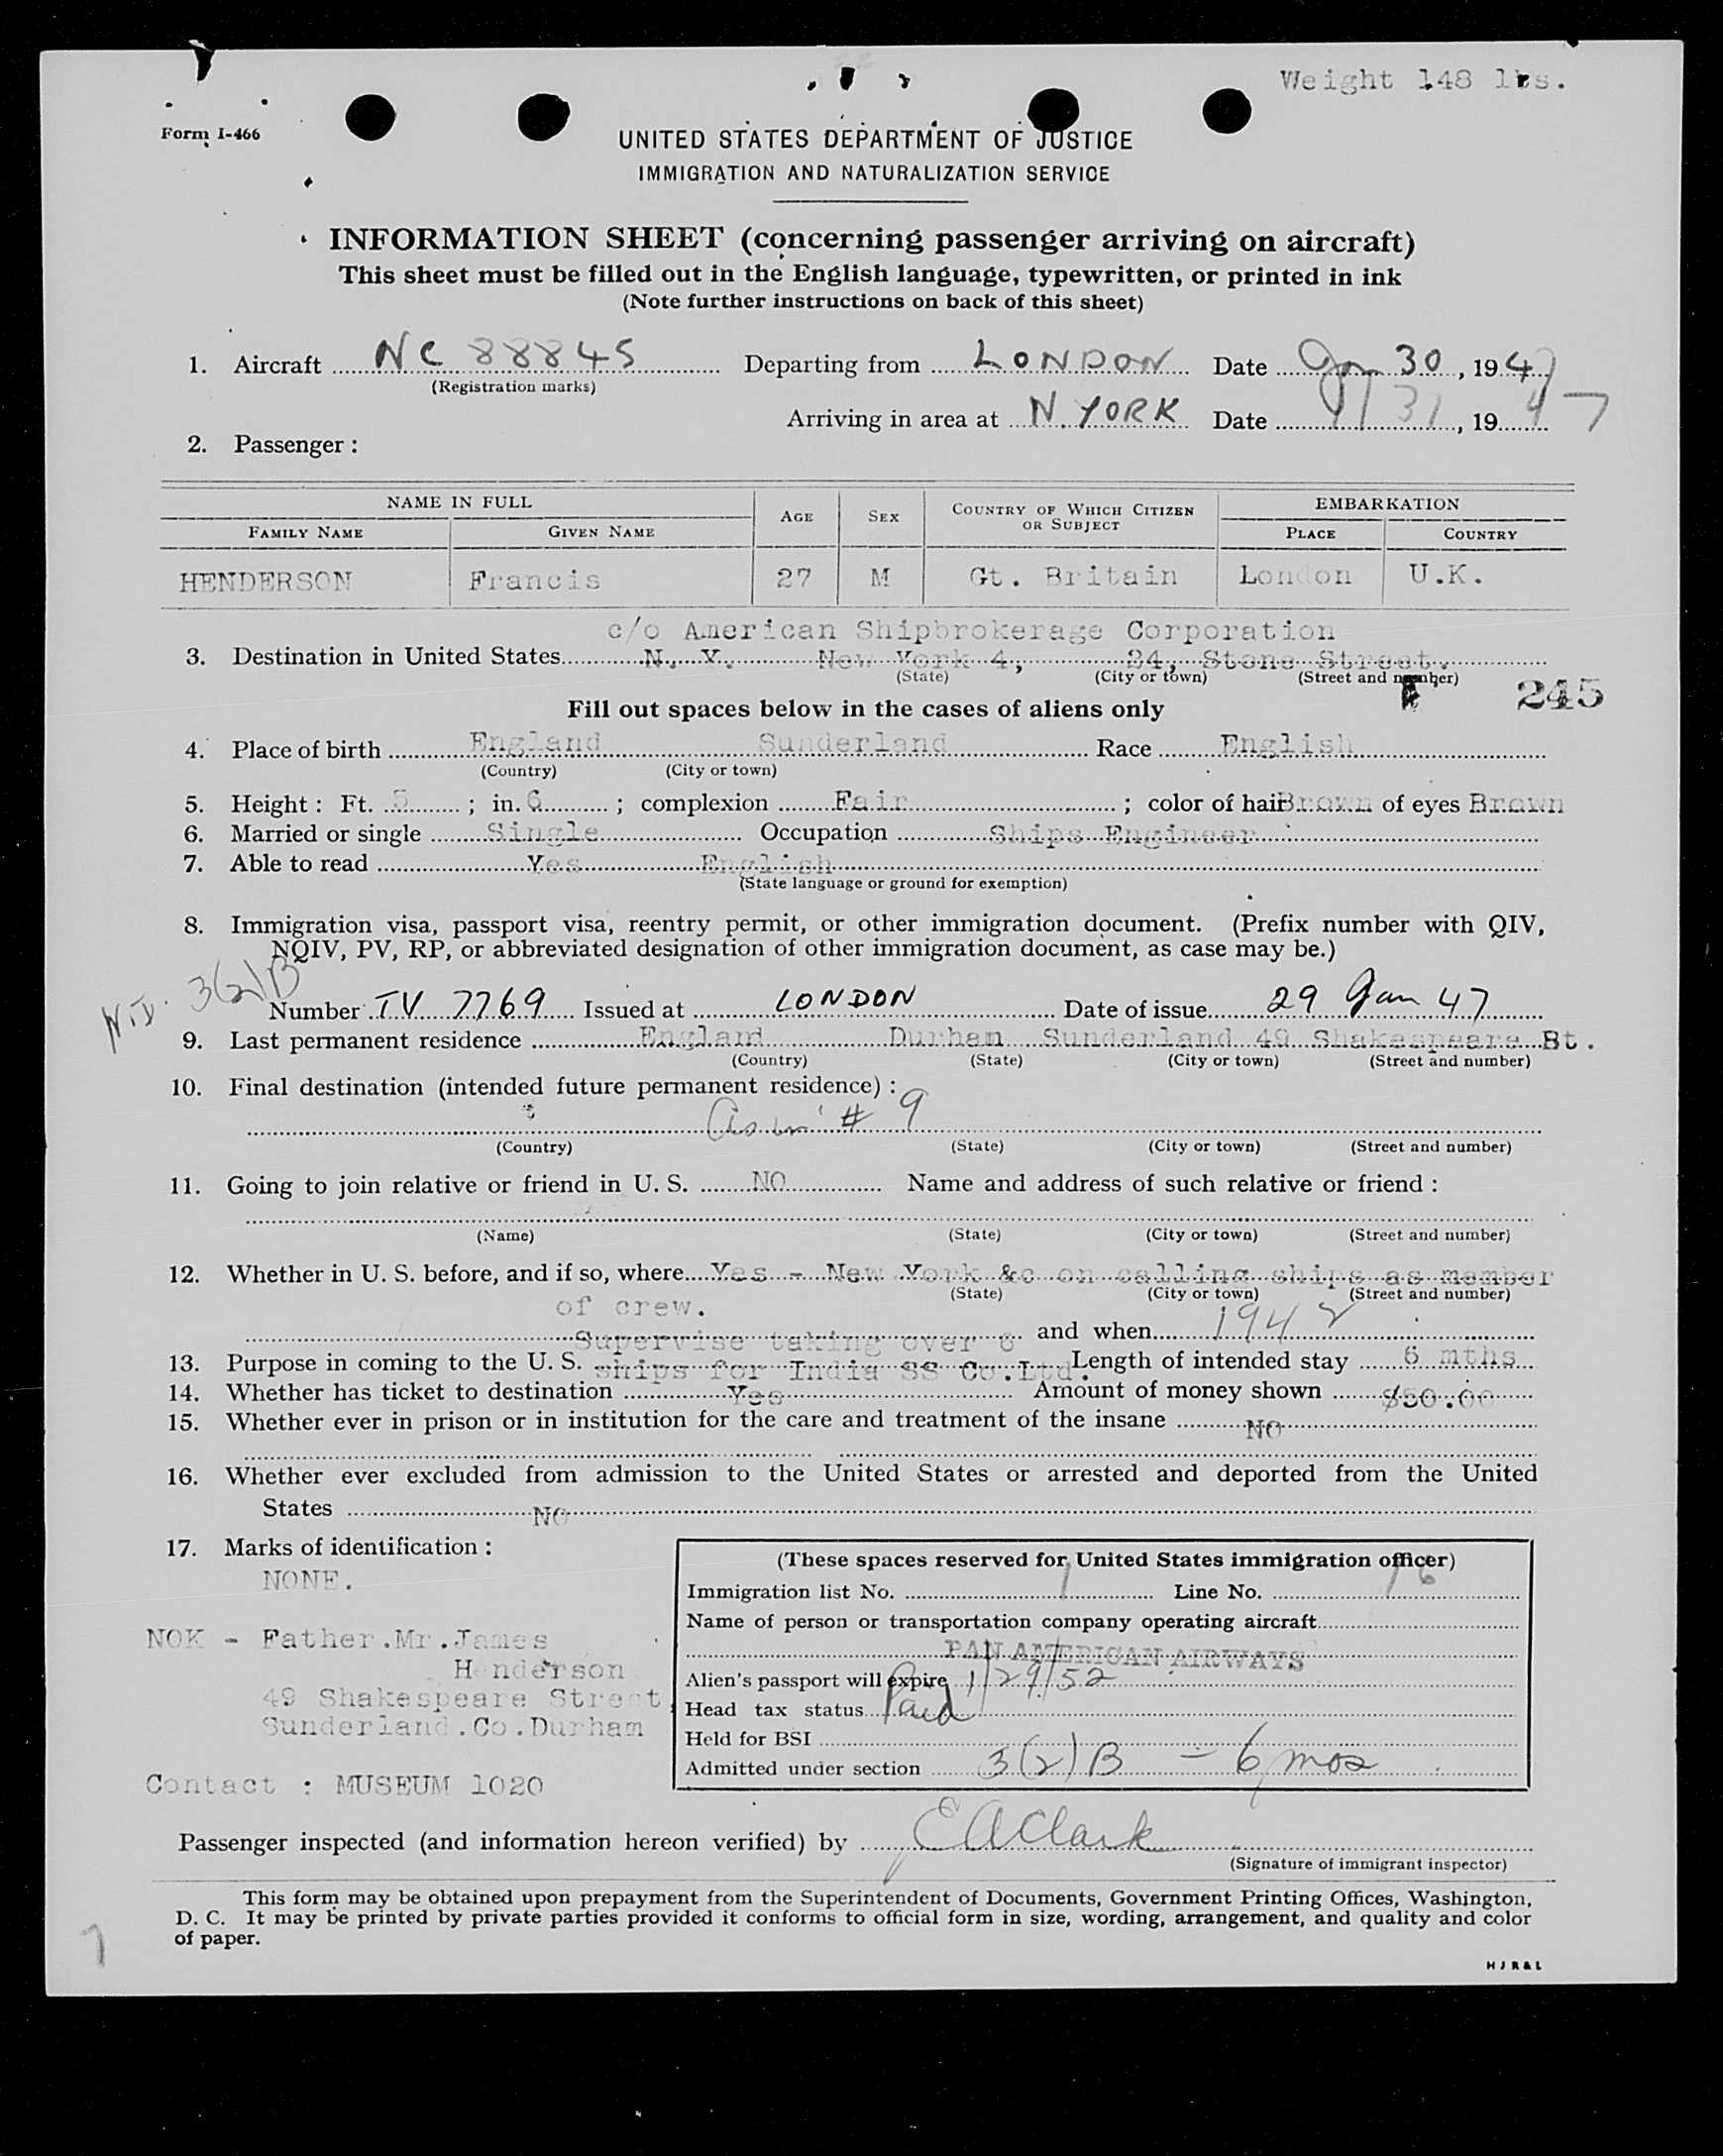 Weight 148 lbs.
Form I-466
UNITED STATES DEPARTMENT OF JUSTICE
IMMIGRATION AND NATURALIZATION SERVICE
INFORMATION SHEET (concerning passenger arriving on aircraft)
This sheet must be filled out in the English language, typewritten, or printed in ink
(Note further instructions on back of this sheet)
1. Aircraft NC 88845 Departing from LONDON Date Jan 30, 1947
(Registration marks)
Arriving in area at N. YORK Date 1/31, 1947
2. Passenger:
NAME IN FULL AGE SEX COUNTRY OF WHICH CITIZEN OR SUBJECT EMBARKATION
FAMILY NAME GIVEN NAME PLACE COUNTRY
HENDERSON Francis 27 M Gt. Britain London U.K.
c/o American Shipbrokerage Corporation
3. Destination in United States N. Y. New York 4, 24, Stone Street.
(State) (City or town) (Street and number)
245
Fill out spaces below in the cases of aliens only
4. Place of birth England Sunderland Race English
(Country) (City or town)
5. Height: Ft. 5; in. 6; complexion Fair; color of hair Brown of eyes Brown
6. Married or single Single Occupation Ships Engineer
7. Able to read Yes English
(State language or ground for exemption)
8. Immigration visa, passport visa, reentry permit, or other immigration document. (Prefix number with QIV,
NQIV, PV, RP, or abbreviated designation of other immigration document, as case may be.)
3(2)B
Number TV 7769 Issued at LONDON Date of issue 29 Jan 47
9. Last permanent residence England Durham Sunderland 49 Shakespeare St.
(Country) (State) (City or town) (Street and number)
10. Final destination (intended future permanent residence):
as in # 9
(Country) (State) (City or town) (Street and number)
11. Going to join relative or friend in U. S. NO Name and address of such relative or friend:
(Name) (State) (City or town) (Street and number)
12. Whether in U. S. before, and if so, where Yes - New York &c on calling ships as member
(State) (City or town) (Street and number)
of crew.
and when 1942
Supervise taking over 6
13. Purpose in coming to the U. S. ships for India SS Co.Ltd. Length of intended stay 6 mths
14. Whether has ticket to destination Yes Amount of money shown $50.00
15. Whether ever in prison or in institution for the care and treatment of the insane NO
16. Whether ever excluded from admission to the United States or arrested and deported from the United
States NO
17. Marks of identification:
NONE.
NOK - Father.Mr.James
Henderson
49 Shakespeare Street,
Sunderland.Co.Durham
Contact : MUSEUM 1020
(These spaces reserved for United States immigration officer)
Immigration list No. 1 Line No. 16
Name of person or transportation company operating aircraft
PAN AMERICAN AIRWAYS
Alien's passport will expire 1/29/52
Head tax status Paid
Held for BSI
Admitted under section 3(2)B - 6 mos
Passenger inspected (and information hereon verified) by E A Clark
(Signature of immigrant inspector)
This form may be obtained upon prepayment from the Superintendent of Documents, Government Printing Offices, Washington,
D. C. It may be printed by private parties provided it conforms to official form in size, wording, arrangement, and quality and color
of paper.
HJR&L